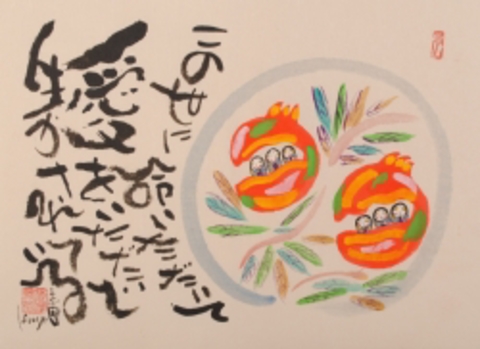 この世に命いただいて
愛をいただいて
生かされている